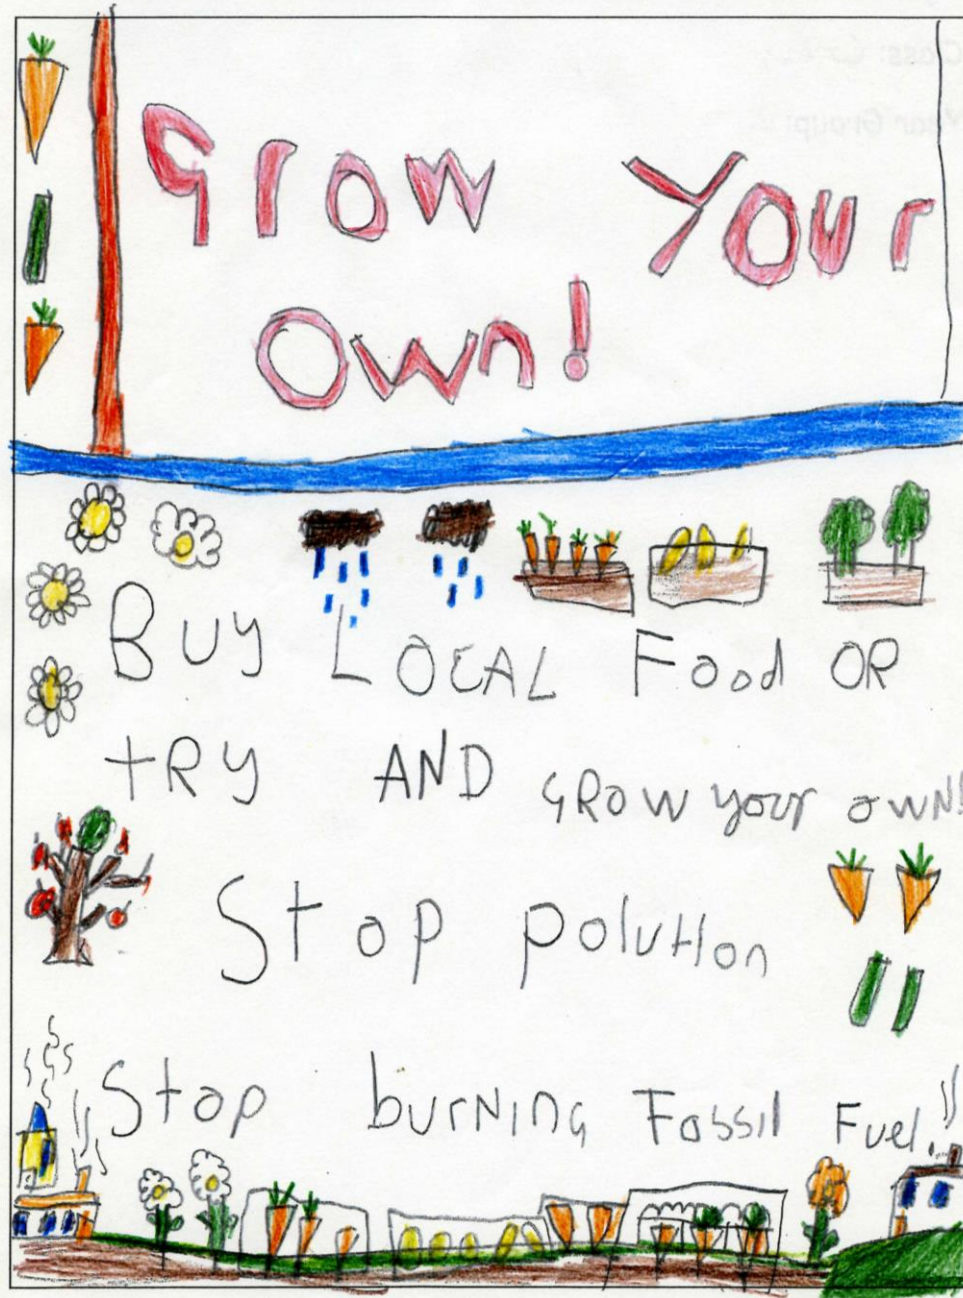 Grow Your
Own!
Buy LOCAL Food OR
tRy AND GRow your owN!
Stop polution
Stop burNiNG Fossil Fuel.